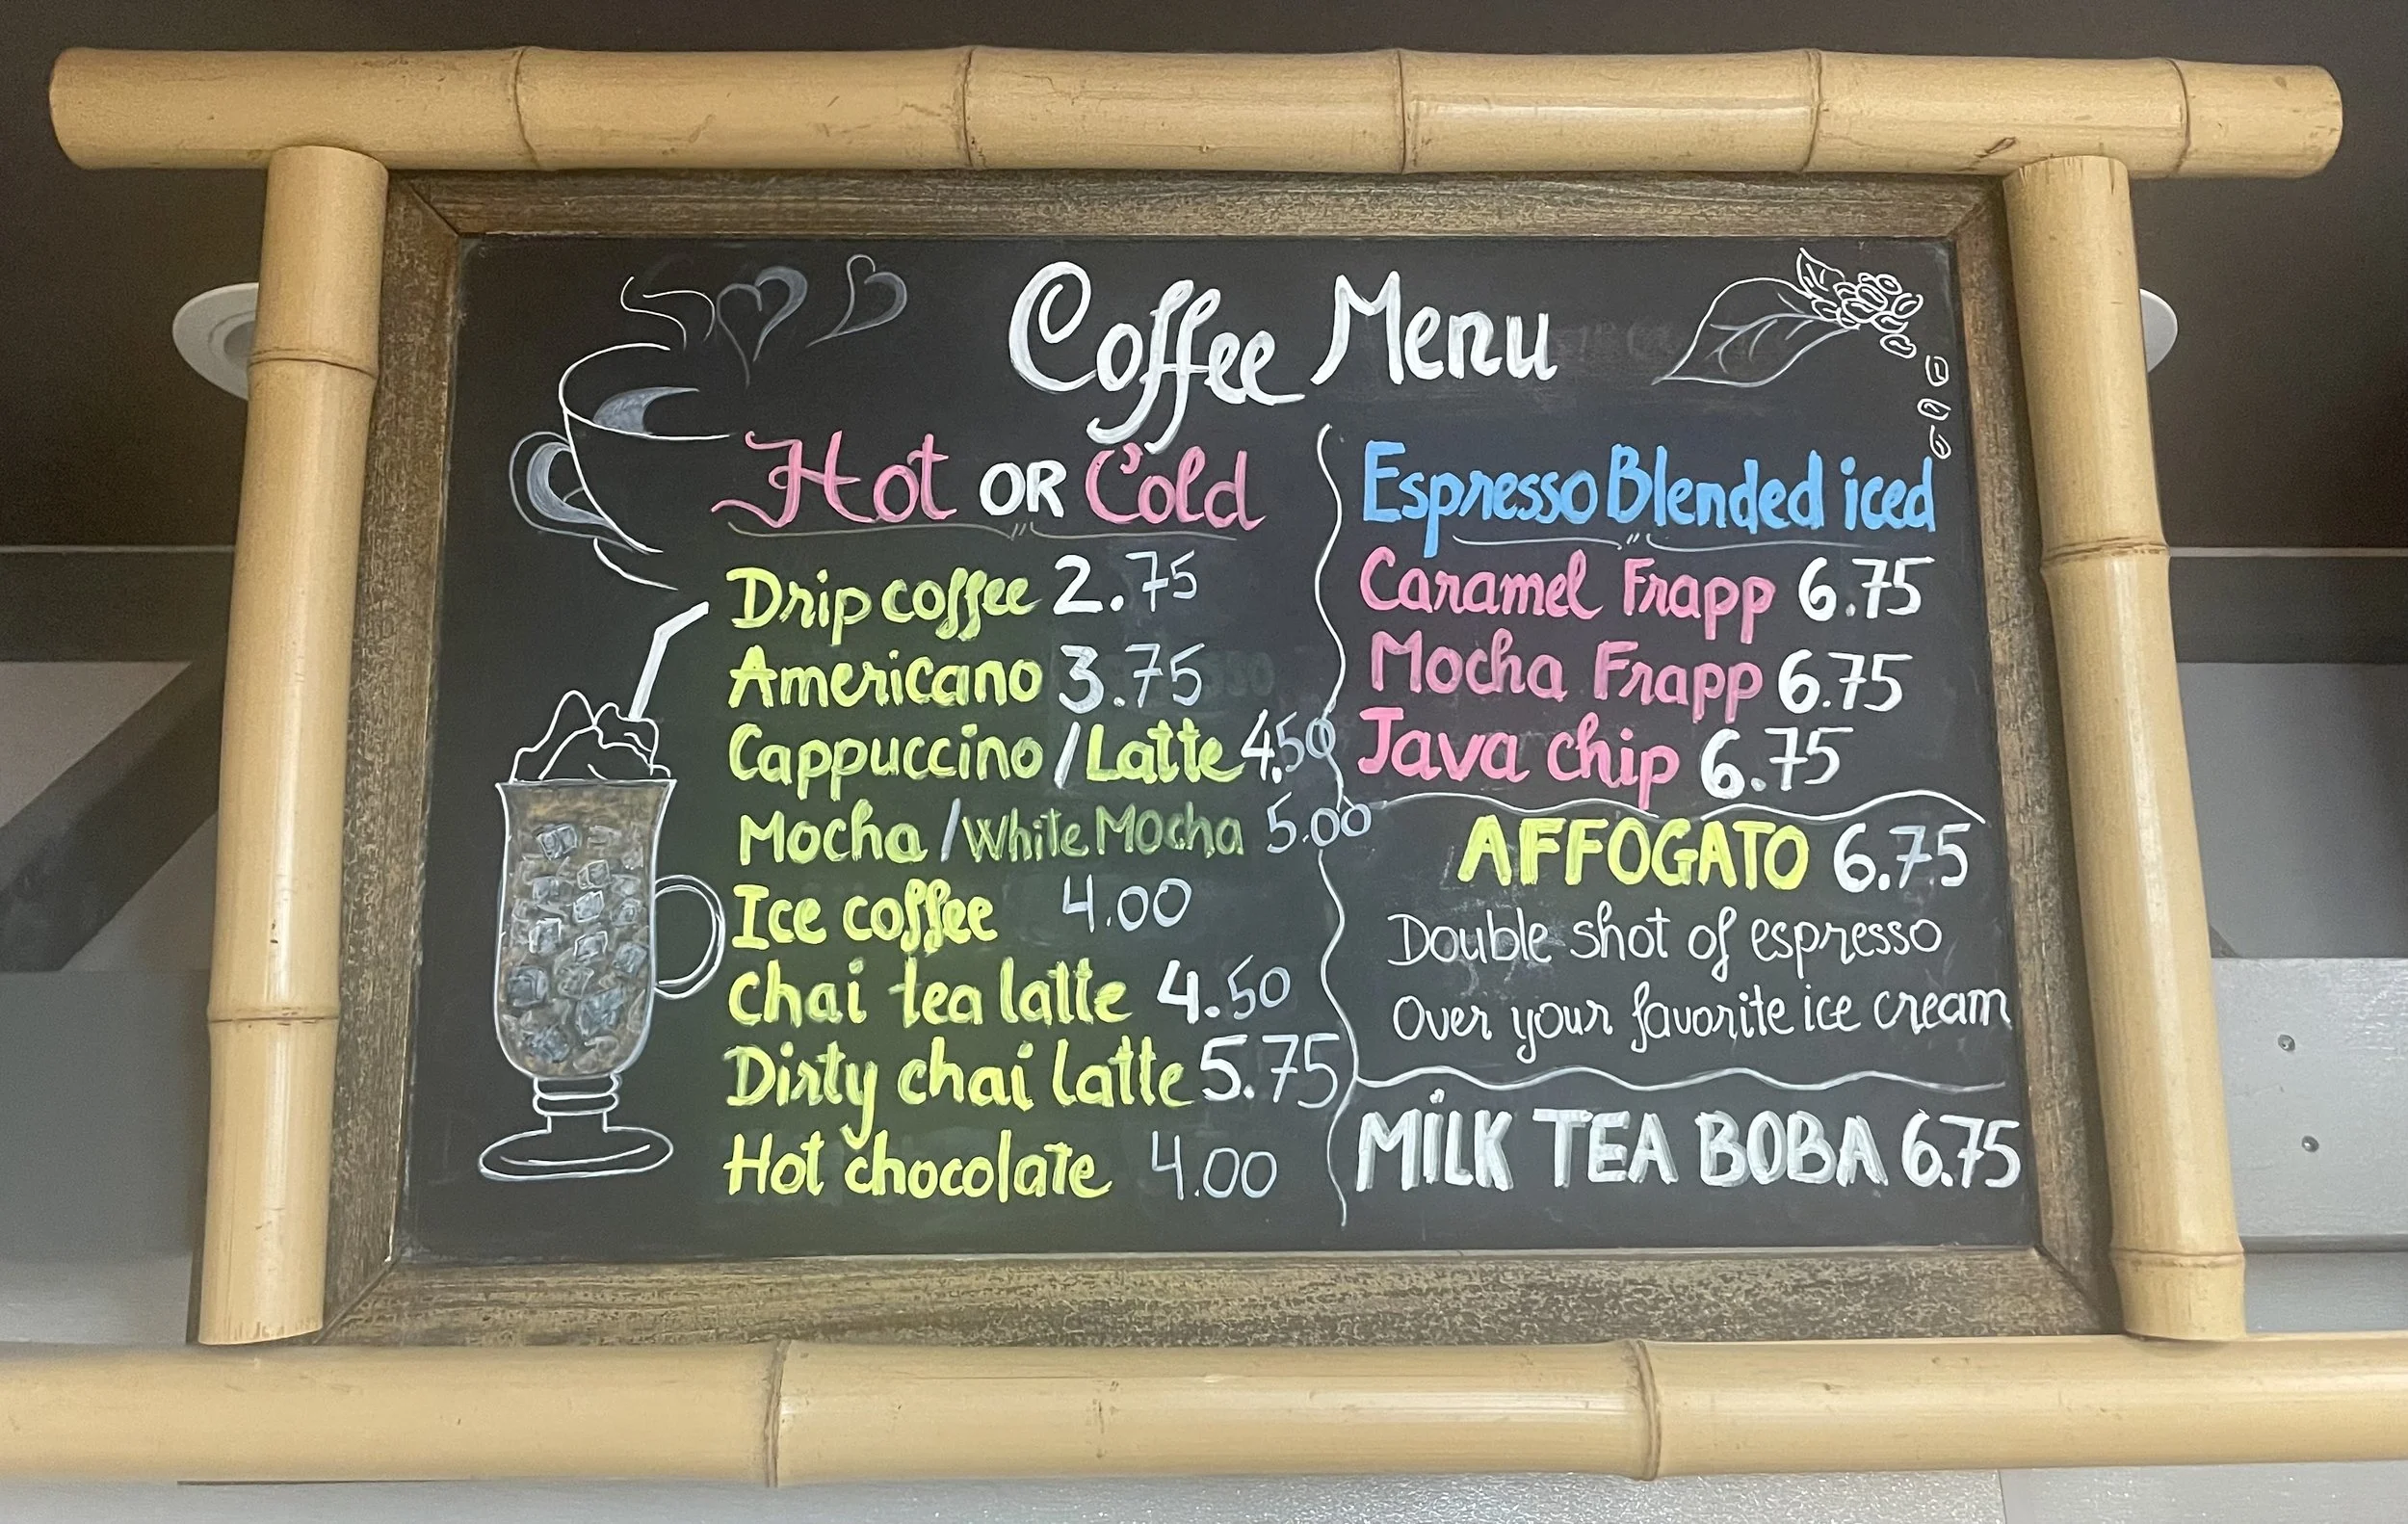 Coffee Menu
Hot OR Cold
Drip coffee 2.75
Americano 3.75
Cappuccino / Latte 4.50
Mocha / White Mocha 5.00
Ice coffee 4.00
Chai tea latte 4.50
Dirty chai latte 5.75
Hot chocolate 4.00
Espresso Blended iced
Caramel Frapp 6.75
Mocha Frapp 6.75
Java chip 6.75
AFFOGATO 6.75
Double shot of espresso
Over your favorite ice cream
MILK TEA BOBA 6.75